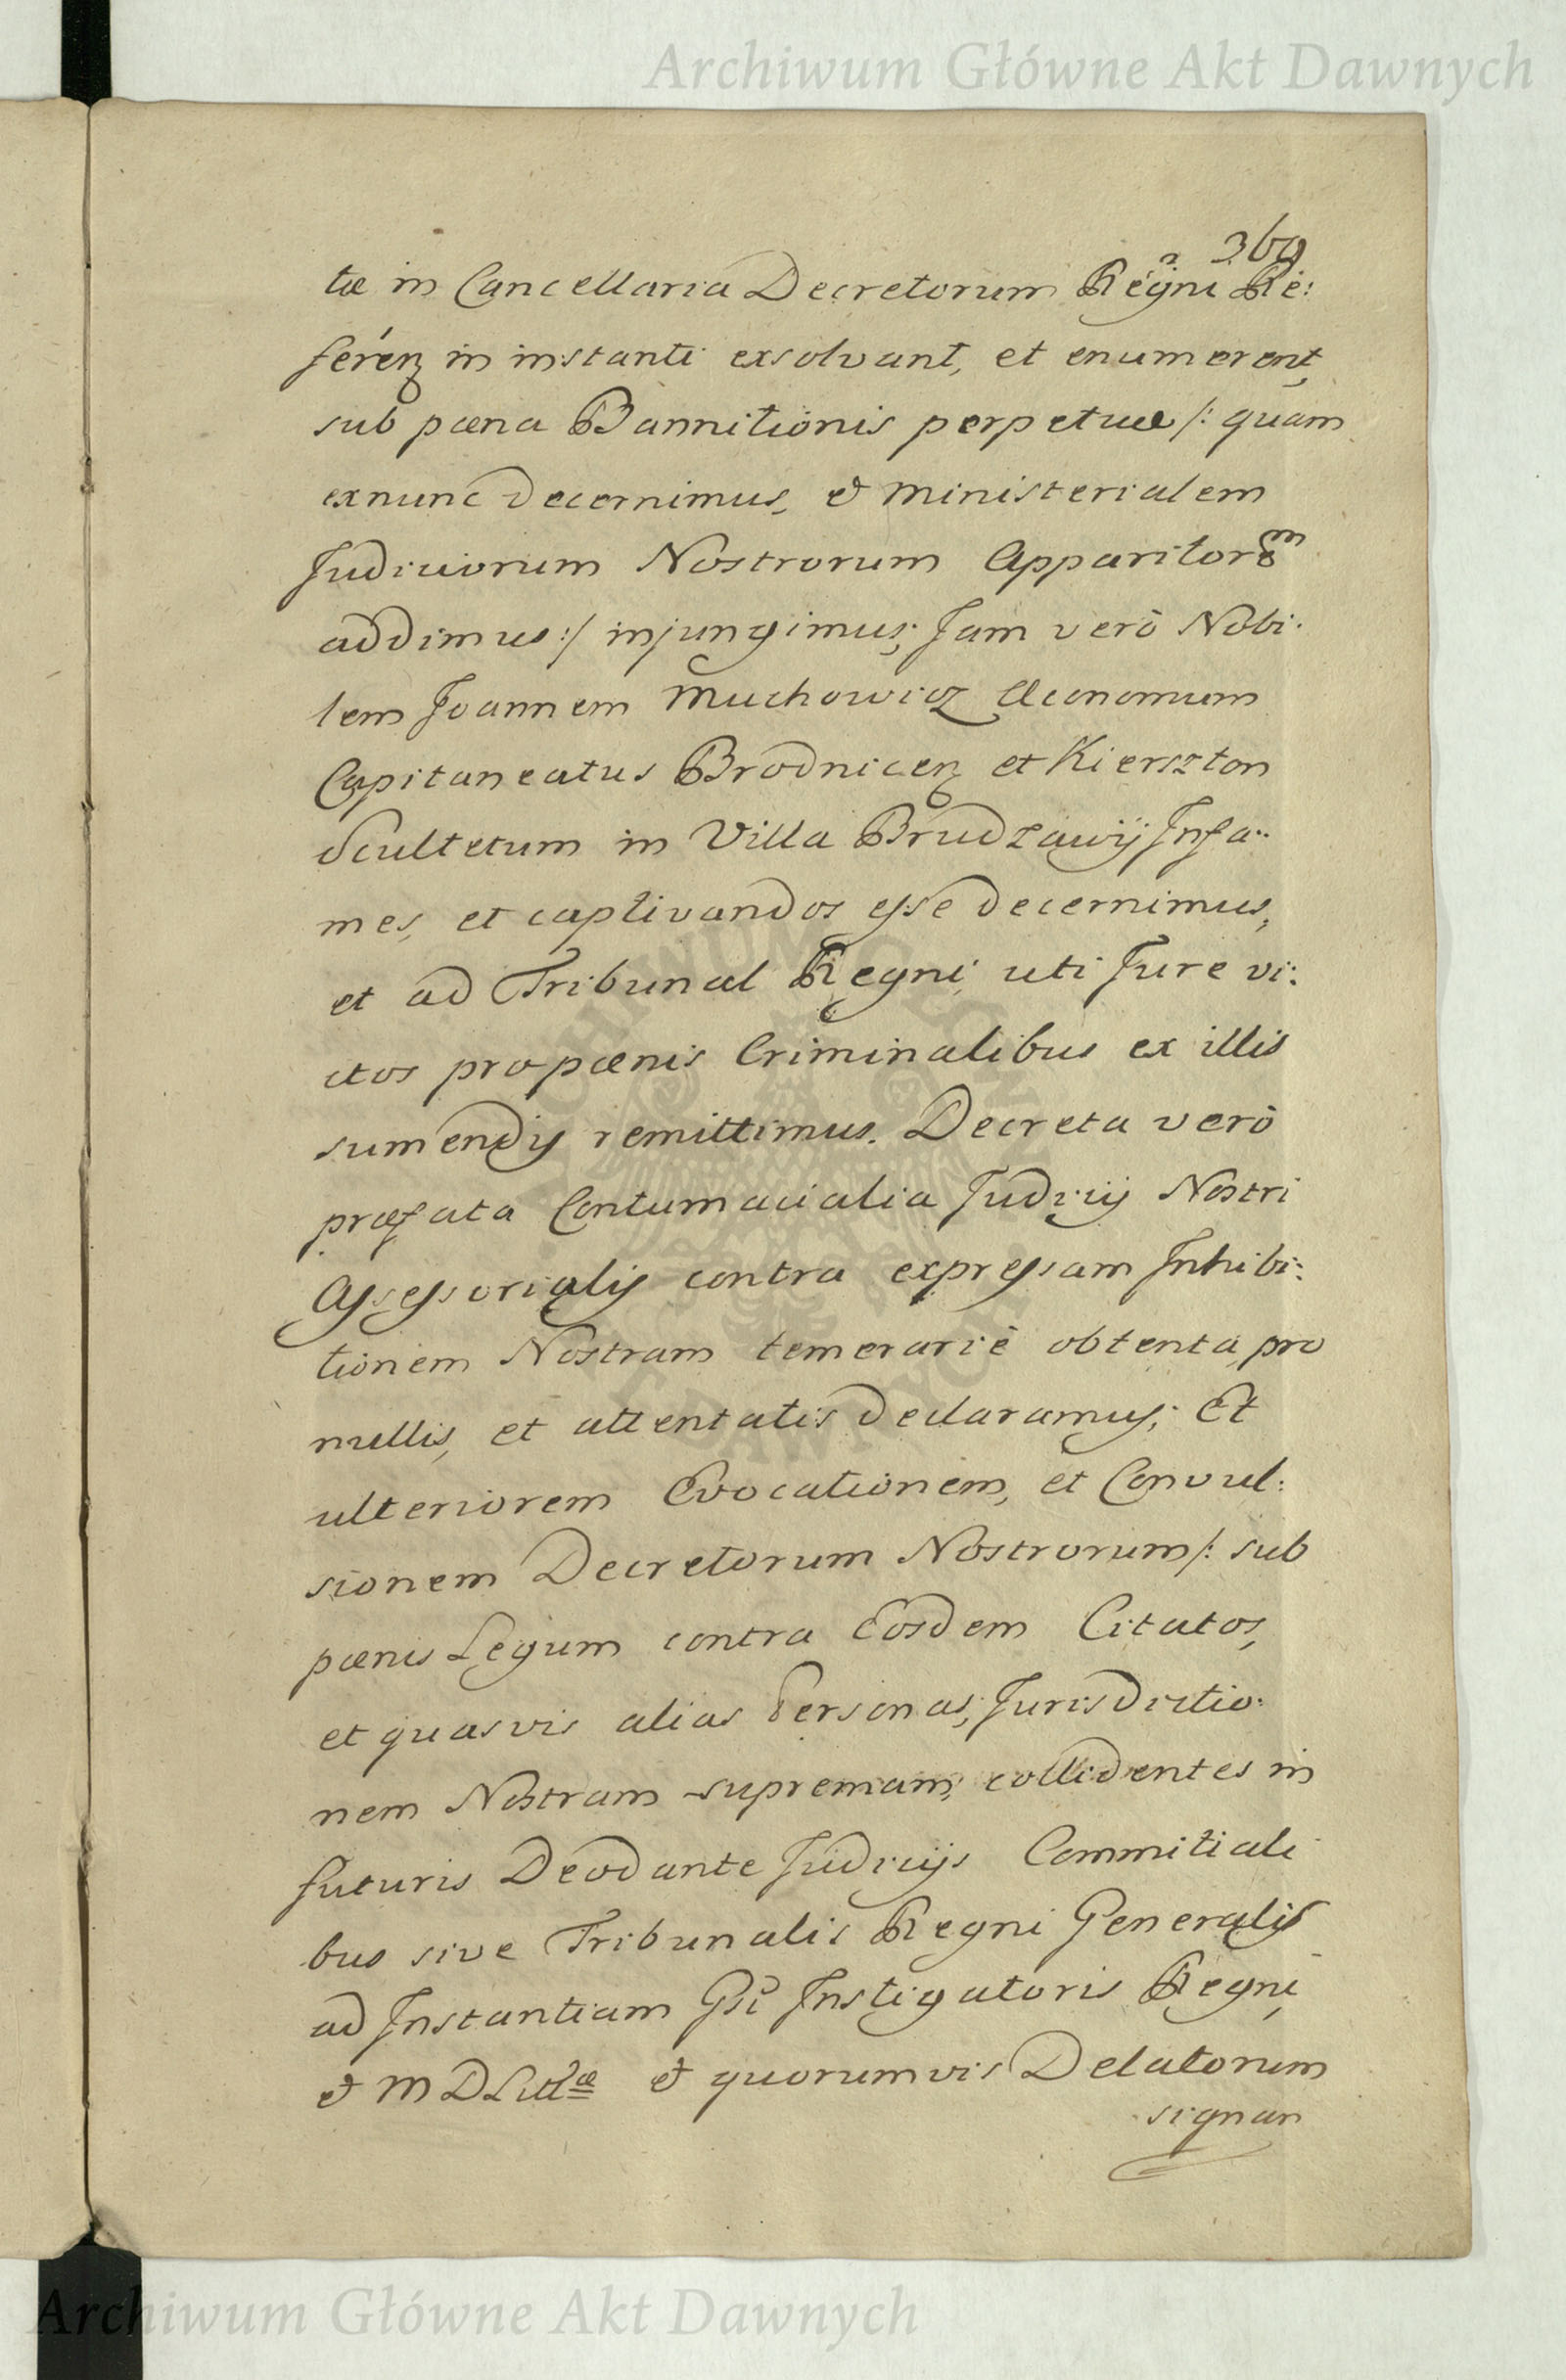 Archiwum Główne Akt Dawnych
369
tæ in Cancellaria Decretorum Regni Re:
feren in instanti exsolvant, et enumerent,
sub pæna Bannitionis perpetuæ /: quam
exnunc decernimus, et ministerialem
Judiciorum Nostrorum Apparitorem
addimus :/ injungimus; Jam verò Nobi:
lem Joannem Muchowicz Œconomum
Capitaneatus Brodnicen et Kierszton
Scultetum in Villa Brudzawÿ Infa:
mes, et captivandos esse decernimus,
et ad Tribunal Regni uti Jure vi:
ctos pro pænis Criminalibus ex illis
sumendis remittimus. Decreta verò
præfata Contumacialia Judicij Nostri
Assessorialis contra expressam Inhibi:
tionem Nostram temerariè obtenta pro
nullis, et attentatis declaramus; Et
ulteriorem Evocationem, et Convul:
sionem Decretorum Nostrorum /: sub
pænis Legum contra Eosdem Citatos,
et quasvis alias Personas, Jurisdictio:
nem Nostram supremam, collidentes in
futuris Deodante Judicijs Commitiali
bus sive Tribunalis Regni Generalis
ad Instantiam Gsi Instigatoris Regni
et M D Littæ et quorumvis Delatorum
signan
Archiwum Główne Akt Dawnych